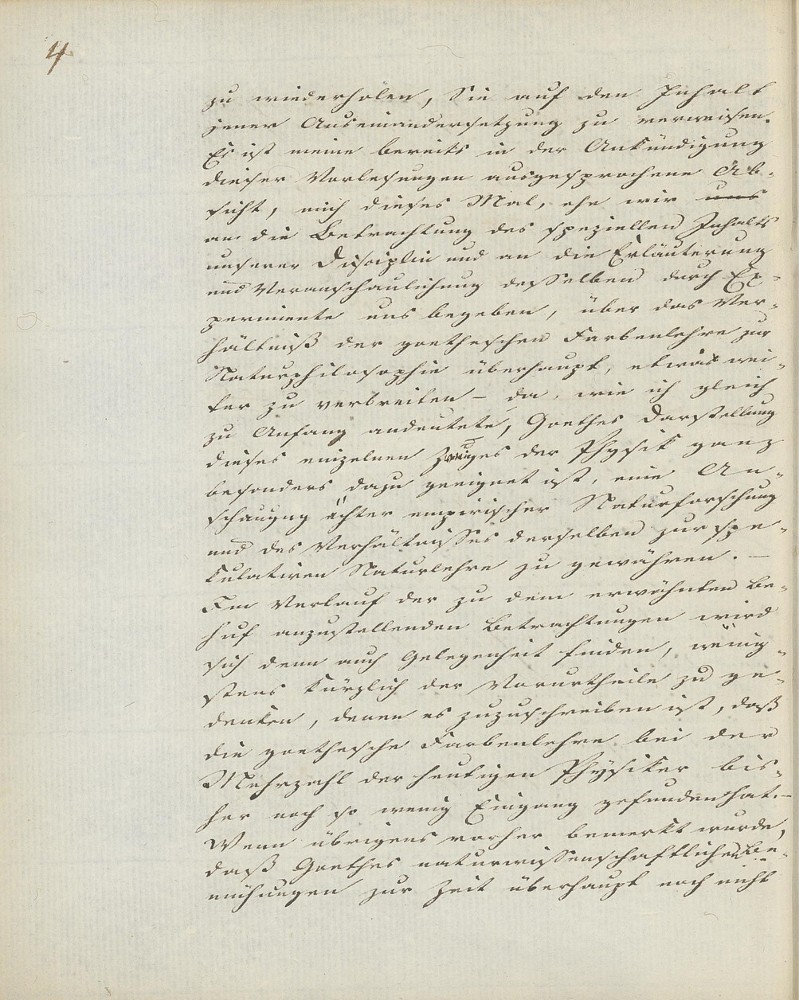 4
zu wiederholen, Sie auf den Inhalt
jener Auseinandersetzung zu verweisen.
Es ist meine bereits in der Ankündigung
dieser Vorlesungen ausgesprochene Ab-
sicht, mich dieses Mal, ehe wir uns
an die Betrachtung des speziellen Inhalts
unserer Disciplin und an die Erläuterung
und Veranschaulichung desselben durch Ex-
perimente uns begeben, über das Ver-
hältniß der goetheschen Farbenlehre zur
Naturphilosophie überhaupt, etwas wei-
ter zu verbreiten – da, wie ich gleich
zu Anfang andeutete, Goethes Darstellung
dieses einzelnen Zweiges der Physik ganz
besonders dazu geeignet ist, eine An-
schauung ächter empirischer Naturforschung
und des Verhältnisses derselben zur spe-
kulativen Naturlehre zu gewähren. –
Im Verlauf der zu dem erwähnten Be-
huf anzustellenden Betrachtungen wird
sich denn auch Gelegenheit finden, wenig-
stens kürzlich der Vorurtheile zu ge-
denken, denen es zuzuschreiben ist, daß
die goethesche Farbenlehre bei der
Mehrzahl der heutigen Physiker bis-
her noch so wenig Eingang gefunden hat. –
Wenn übrigens vorher bemerkt wurde,
daß Goethes naturwissenschaftlichen Be-
mühungen zur Zeit überhaupt noch nicht